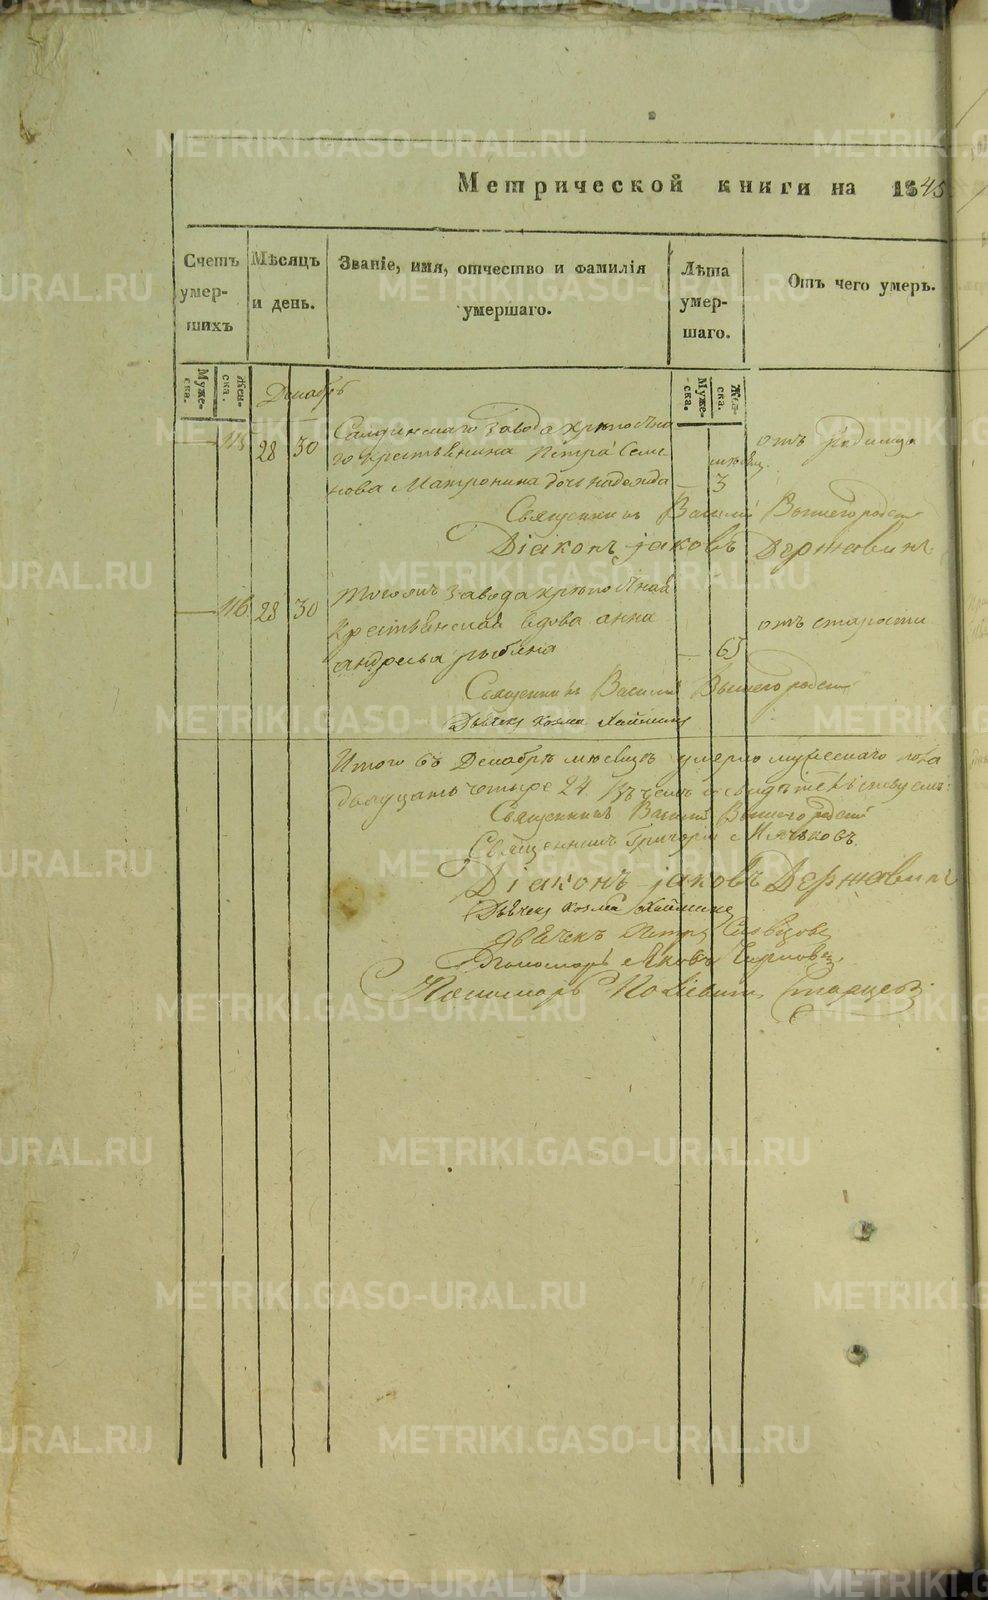 METRIKI.GASO-URAL.RU
Метрической книги на 1845
Счетъ умер- шихъ
Мѣсяцъ и день.
Званіе, имя, отчество и фамилія умершаго.
Лѣта умер- шаго.
Отъ чего умеръ.
Муже- ска.
Жен- ска.
Декабрь
Муже- ска.
Жен- ска.
115 28 30 Салдинскаго завода крѣпостна
го крестьянина Петра Семе
нова Матронина дочь надежда
3
отъ родимца
Священникъ Василій
Діаконъ Іаковъ Державинъ
116 28 30 тогожъ завода крѣпостная
крестьянская вдова анна
андреева рыбина
65
отъ старости
Священникъ Василій
Дьячекъ Козма
Итого въ Декабрѣ месяцѣ умерло мужескаго пола
двадцать четыре 24. Въ чемъ и свидѣтельствуемъ:
Священникъ Василій
Священникъ Григорій Мячковъ
Діаконъ Іаковъ Державинъ
Дьячекъ Козма
Дьячекъ Петръ Словцовъ
Пономарь Яковъ
Пономарь Старцевъ